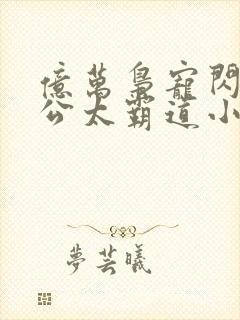 億萬梟寵閃
公太霸道小
夢芸曦